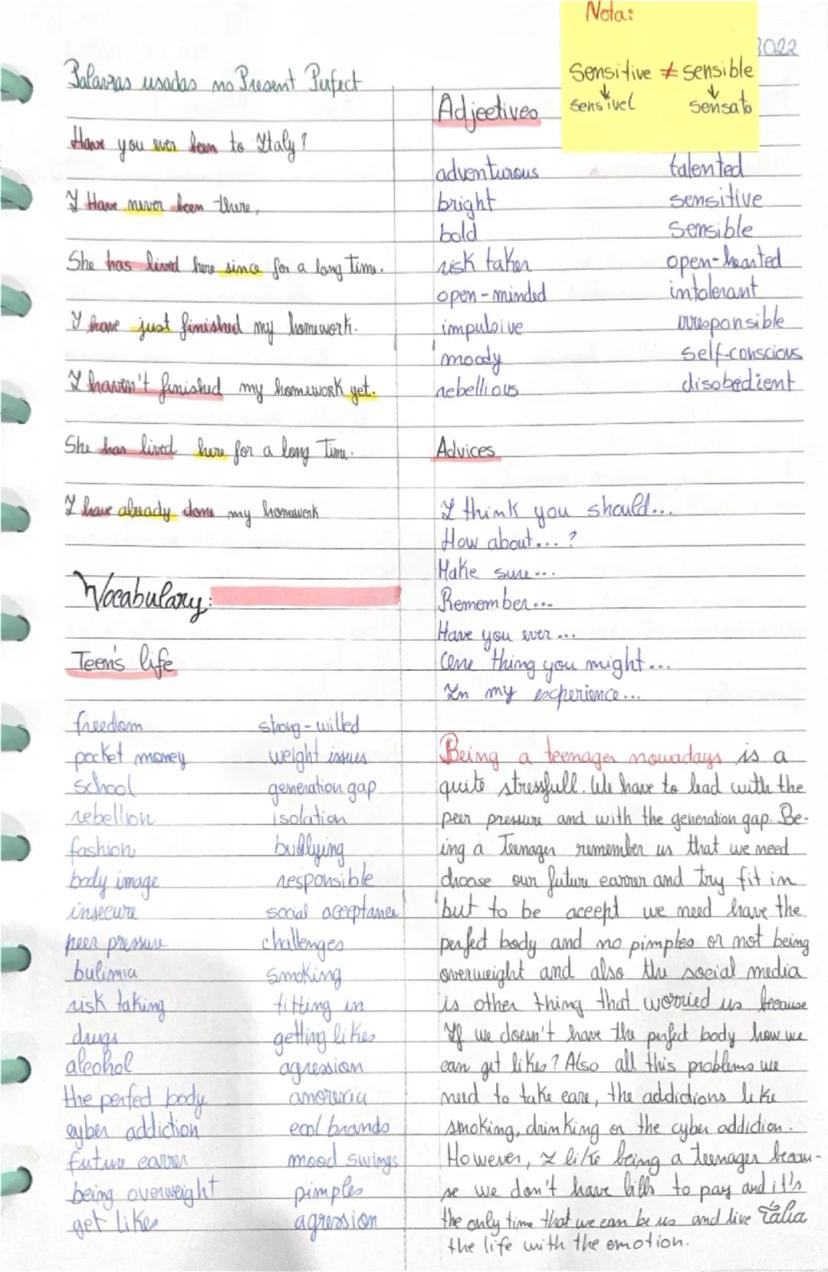 Nota:
Sensitive ≠ sensible
↓ ↓
sensível sensato
2022
Palavras usadas no Present Perfect
Have you ever been to Italy?
I Have never been there,
She has lived here since for a long time.
I have just finished my homework.
I haven't finished my homework yet.
She has lived here for a long Time.
I have already done my homework
Vocabulary:
Teen's life
freedom strong-willed
pocket money weight issues
school generation gap
rebellion isolation
fashion bullying
body image responsible
insecure social acceptance
peer pressure challenges
bulimia smoking
risk taking fitting in
drugs getting likes
alcohol agression
the perfect body anorexia
cyber addiction cool brands
future career mood swings
being overweight pimples
get likes agression
Adjectives
adventurous talented
bright sensitive
bold Sensible
risk taker open-hearted
open-minded intolerant
impulsive irresponsible
moody self-conscious
rebellious disobedient
Advices
I think you should...
How about...?
Make sure...
Remember...
Have you ever...
One thing you might...
In my experience...
Being a teenager nowadays is a
quite stressfull. We have to lead with the
peer pressure and with the generation gap. Be-
ing a Teenager remember us that we need
choose our future career and try fit in
but to be accept we need have the
perfect body and no pimples or not being
overweight and also the social media
is other thing that worried us because
If we doesn't have the perfect body how we
can get likes? Also all this problems we
need to take care, the addictions like
smoking, drinking or the cyber addiction.
However, I like being a teenager becau-
se we don't have bills to pay and it's
the only time that we can be us and live Tália
the life with the emotion.